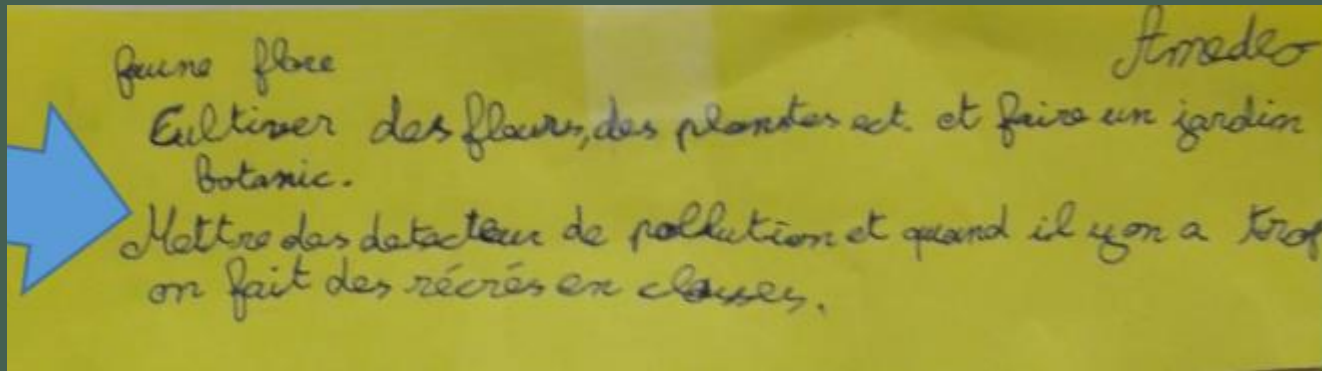 faune flore
Amedeo
Cultiver des fleurs, des plantes ect. et faire un jardin
botanic.
Mettre des detecteur de pollution et quand il y en a trop
on fait des récrés en classes.